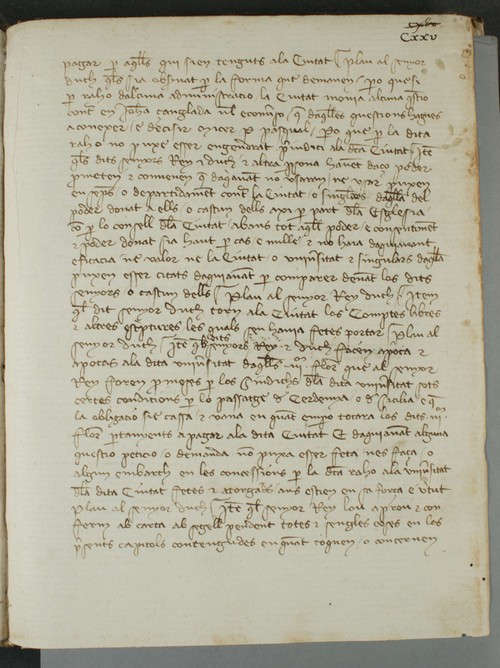 CXXV
pagar p aqlls qui sien tenguts ala Ciutat / Plau al senyor
duch qls sia obseruat p la forma que demanen / po que si
p raho dalcuna administracio la Ciutat mouia alcuna qstio
cont en Joha canglada ul economo / q daqlles questions hagues
a conexer / e decisir micer P pasqual / Po que p la dita
raho no p upe esser engendrat piudici ala dta Ciutat / Ite
qls dits senyors Rey duch / e altra psona hauet daço poder
pmeten e conuenen q daqiauat no usaran ne usar puxen
en xps o departidamet cont la Ciutat o singlars daqlla del
poder donat a ells o casun dells axi p part dla Esglesia
o p lo consell dla Ciutat abans tot aqll poder e consentimet
e poder donat sia haut p cas e nulle e no haia daquiauant
eficacia ne valor ne la Ciutat o uniusitat e singulars daqlla
puxen esser citats daquiauat p comparer deuat los dits
senyors o casun dells / Plau al senyor Rey duch / Item
ql dit senyor duch torn ala Ciutat los Comptes libres
e altres escriptures les quals sen hauia fetes portar / Plau al
senyor duch / Ite ql dits senyors Rey e duch facen apoca e
apocas ala dita uniusitat daqlls flor que al senyor
Rey foren pmeses p los Sindichs dla dita uniusitat sots
certes condicions p lo passatge d Cerdenya o d Sicilia e q
la obligacio sie cassa e vana en quat empo tocara los dits
flor ptanyents a pagar ala dita Ciutat Et daquiauat alguna
questio peticio o demanda no puxa esser feta nes faça o
algun embarch en les concessions p la dta raho ala uniusitat
dla dita Ciutat fetes e atorgades ans estien en sa força e vtut
Plau al senyor duch / Ite ql senyor Rey lou aprou e con
ferm ab carta ab segell pendent totes e sengles coses en los
psents capitols contengudes en quat toquen o concernen